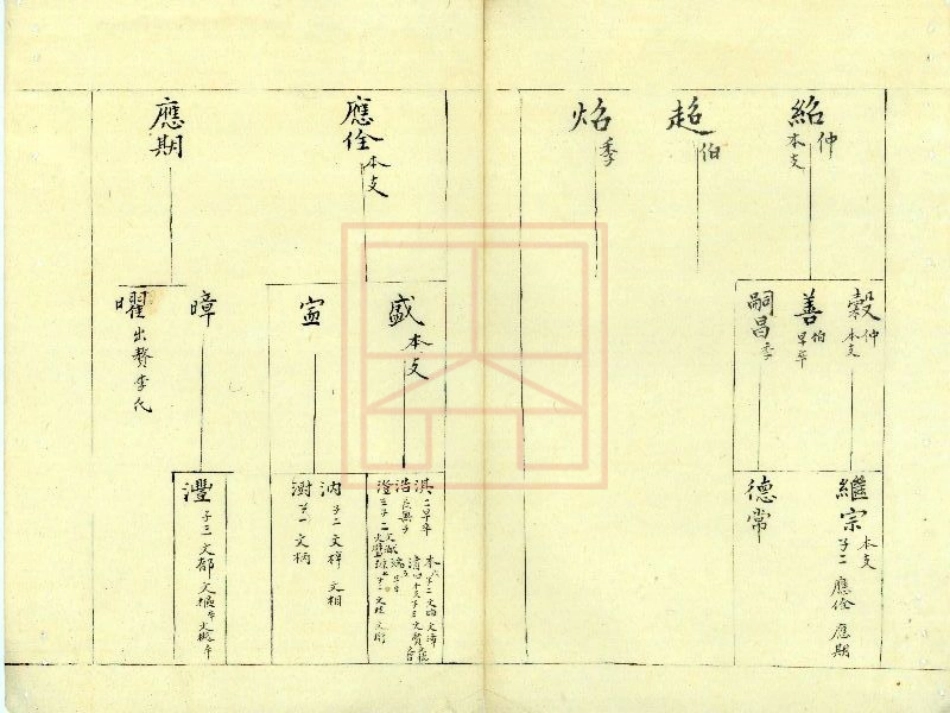 紹 仲 本支
超 伯
炤 季
穀 仲 本支
善 伯 早卒
嗣昌 季
繼宗 本支 子二 應佺 應期
德常
應佺 本支
應期
盛 本支
寍
暲
曜 出贅李氏
淇 二早卒
浩 三無子
澄 五子二
汭 子二 文樺 文相
澍 子一 文柄
灃 子三 文部